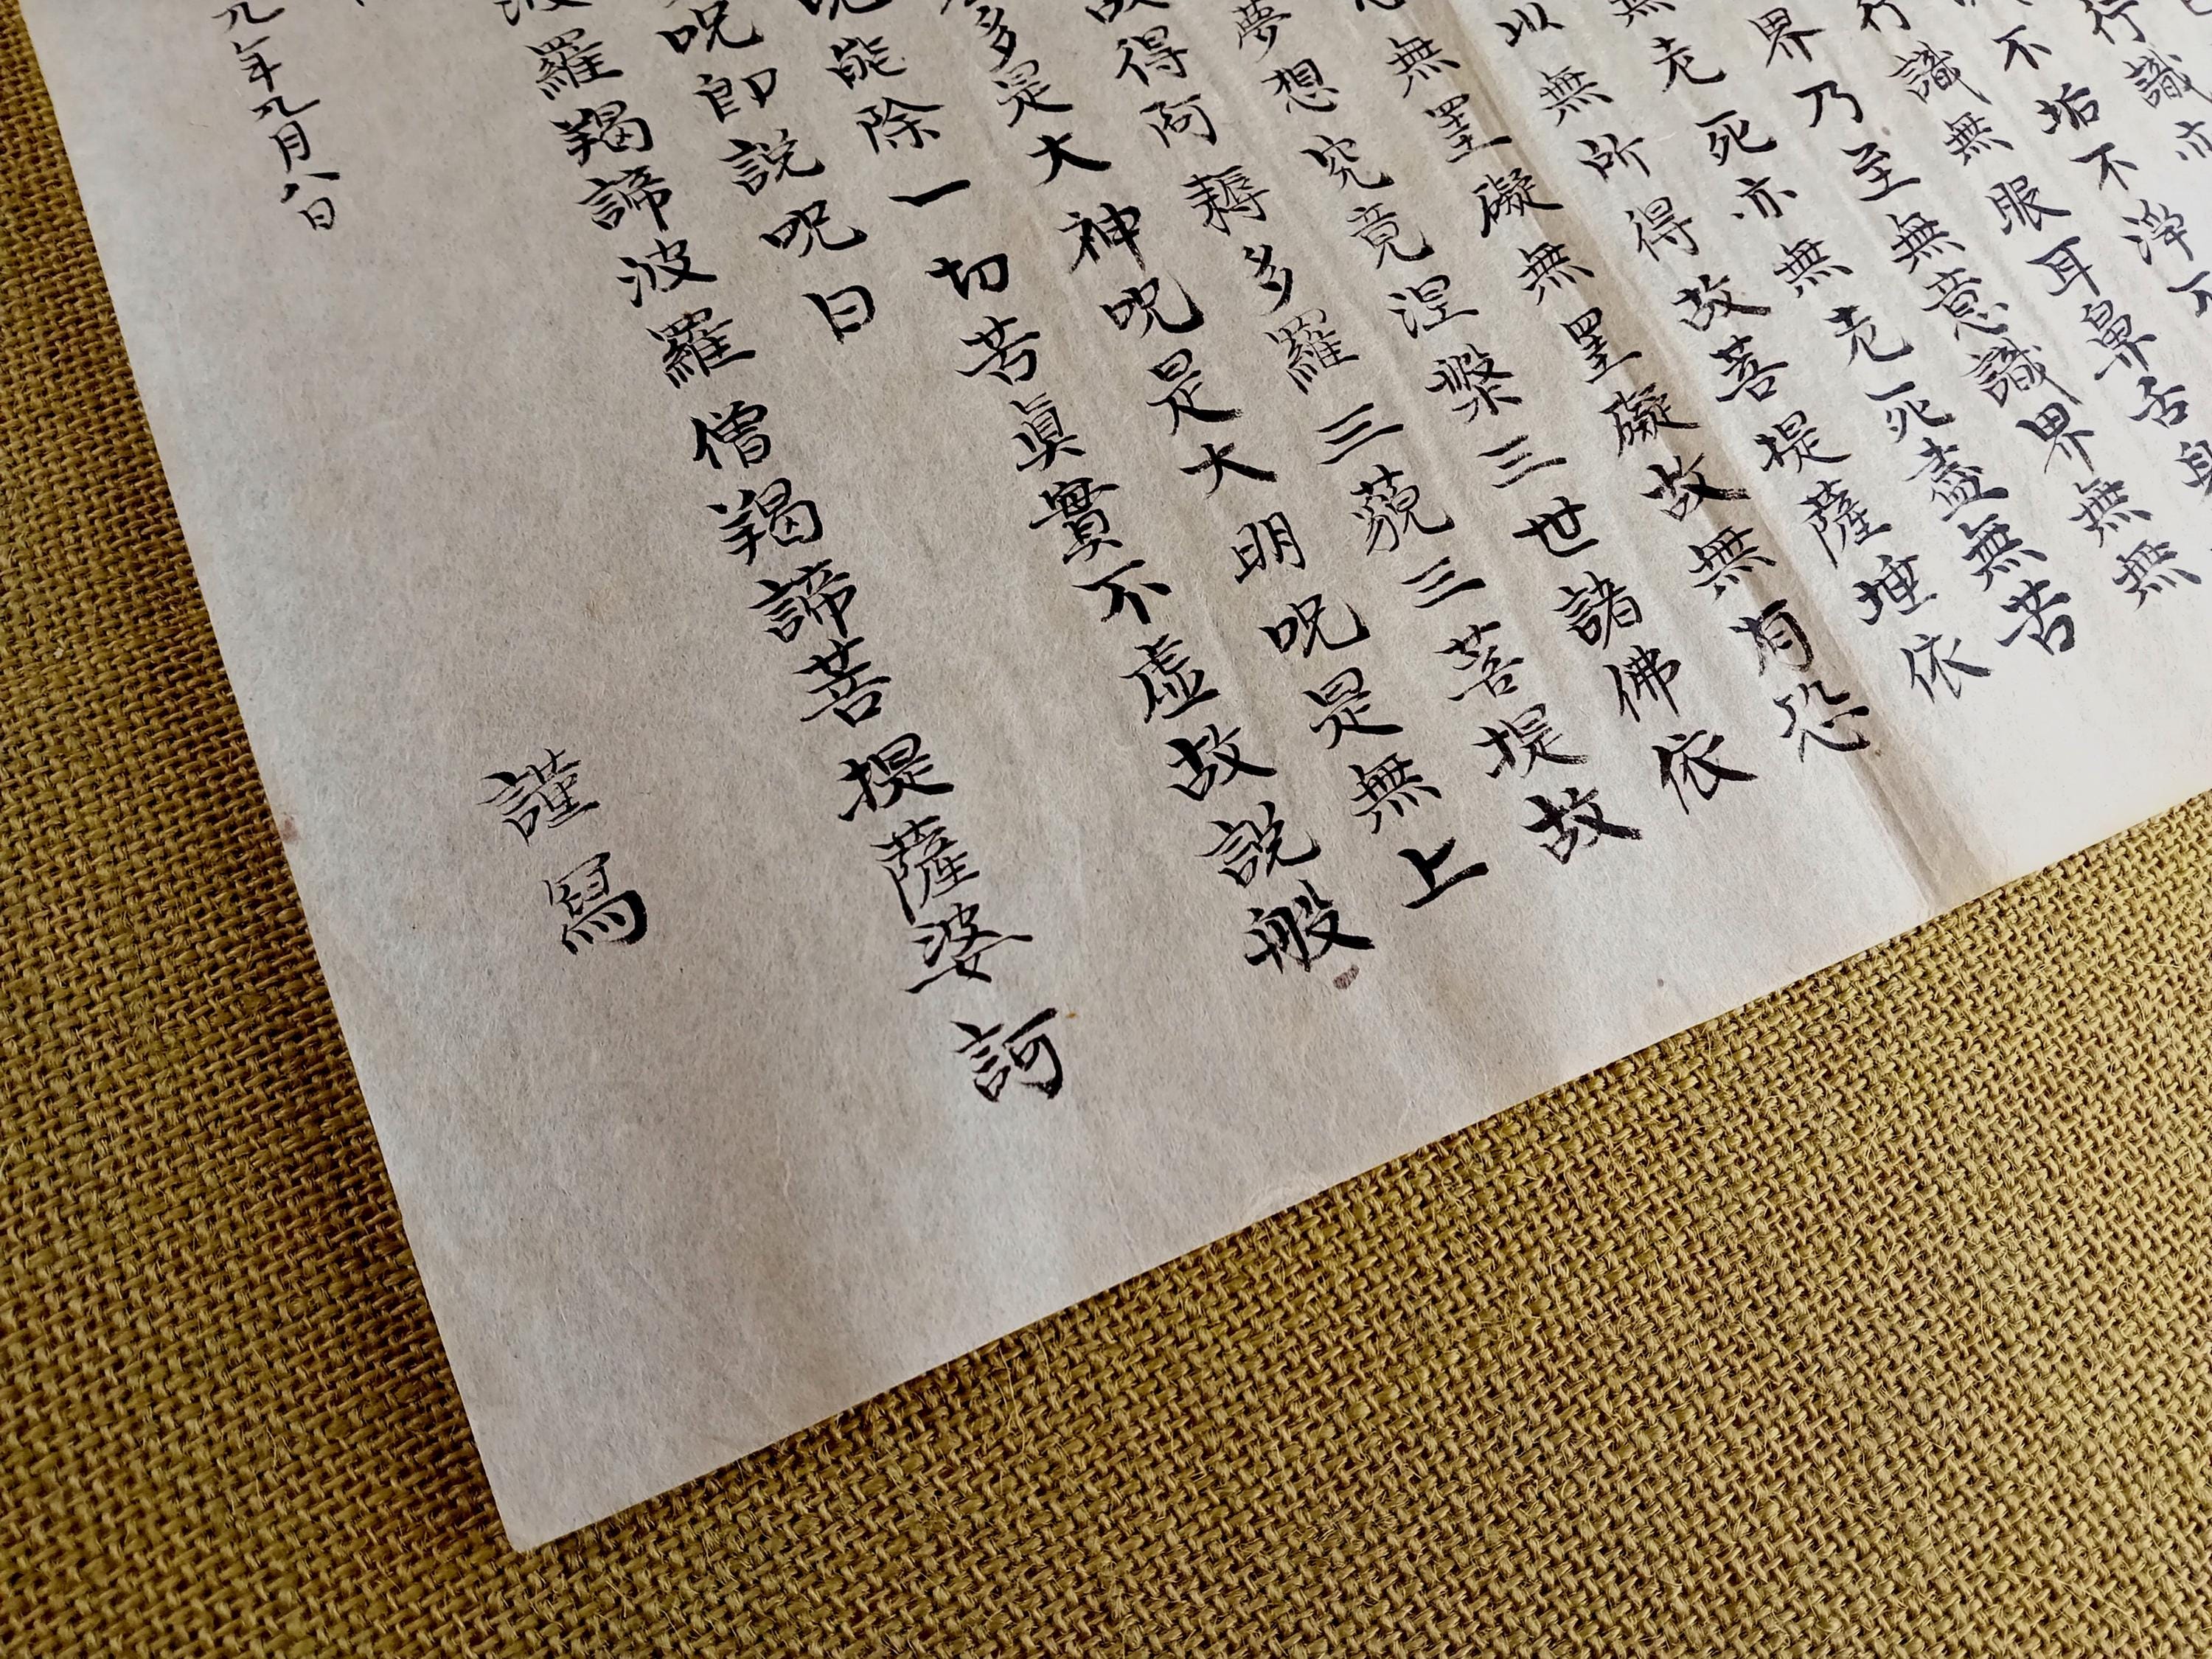 行識亦
不垢不淨不
行識無眼耳鼻舌身
界乃至無意識界無無
無老死亦無老死盡無苦
以無所得故菩提薩埵依
無罣礙無罣礙故無有恐
夢想究竟涅槃三世諸佛依
故得阿耨多羅三藐三菩提故
多是大神咒是大明咒是無上
咒能除一切苦眞實不虛故說般
咒即說咒曰
波羅羯諦波羅僧羯諦菩提薩婆訶
九年九月八日
謹寫